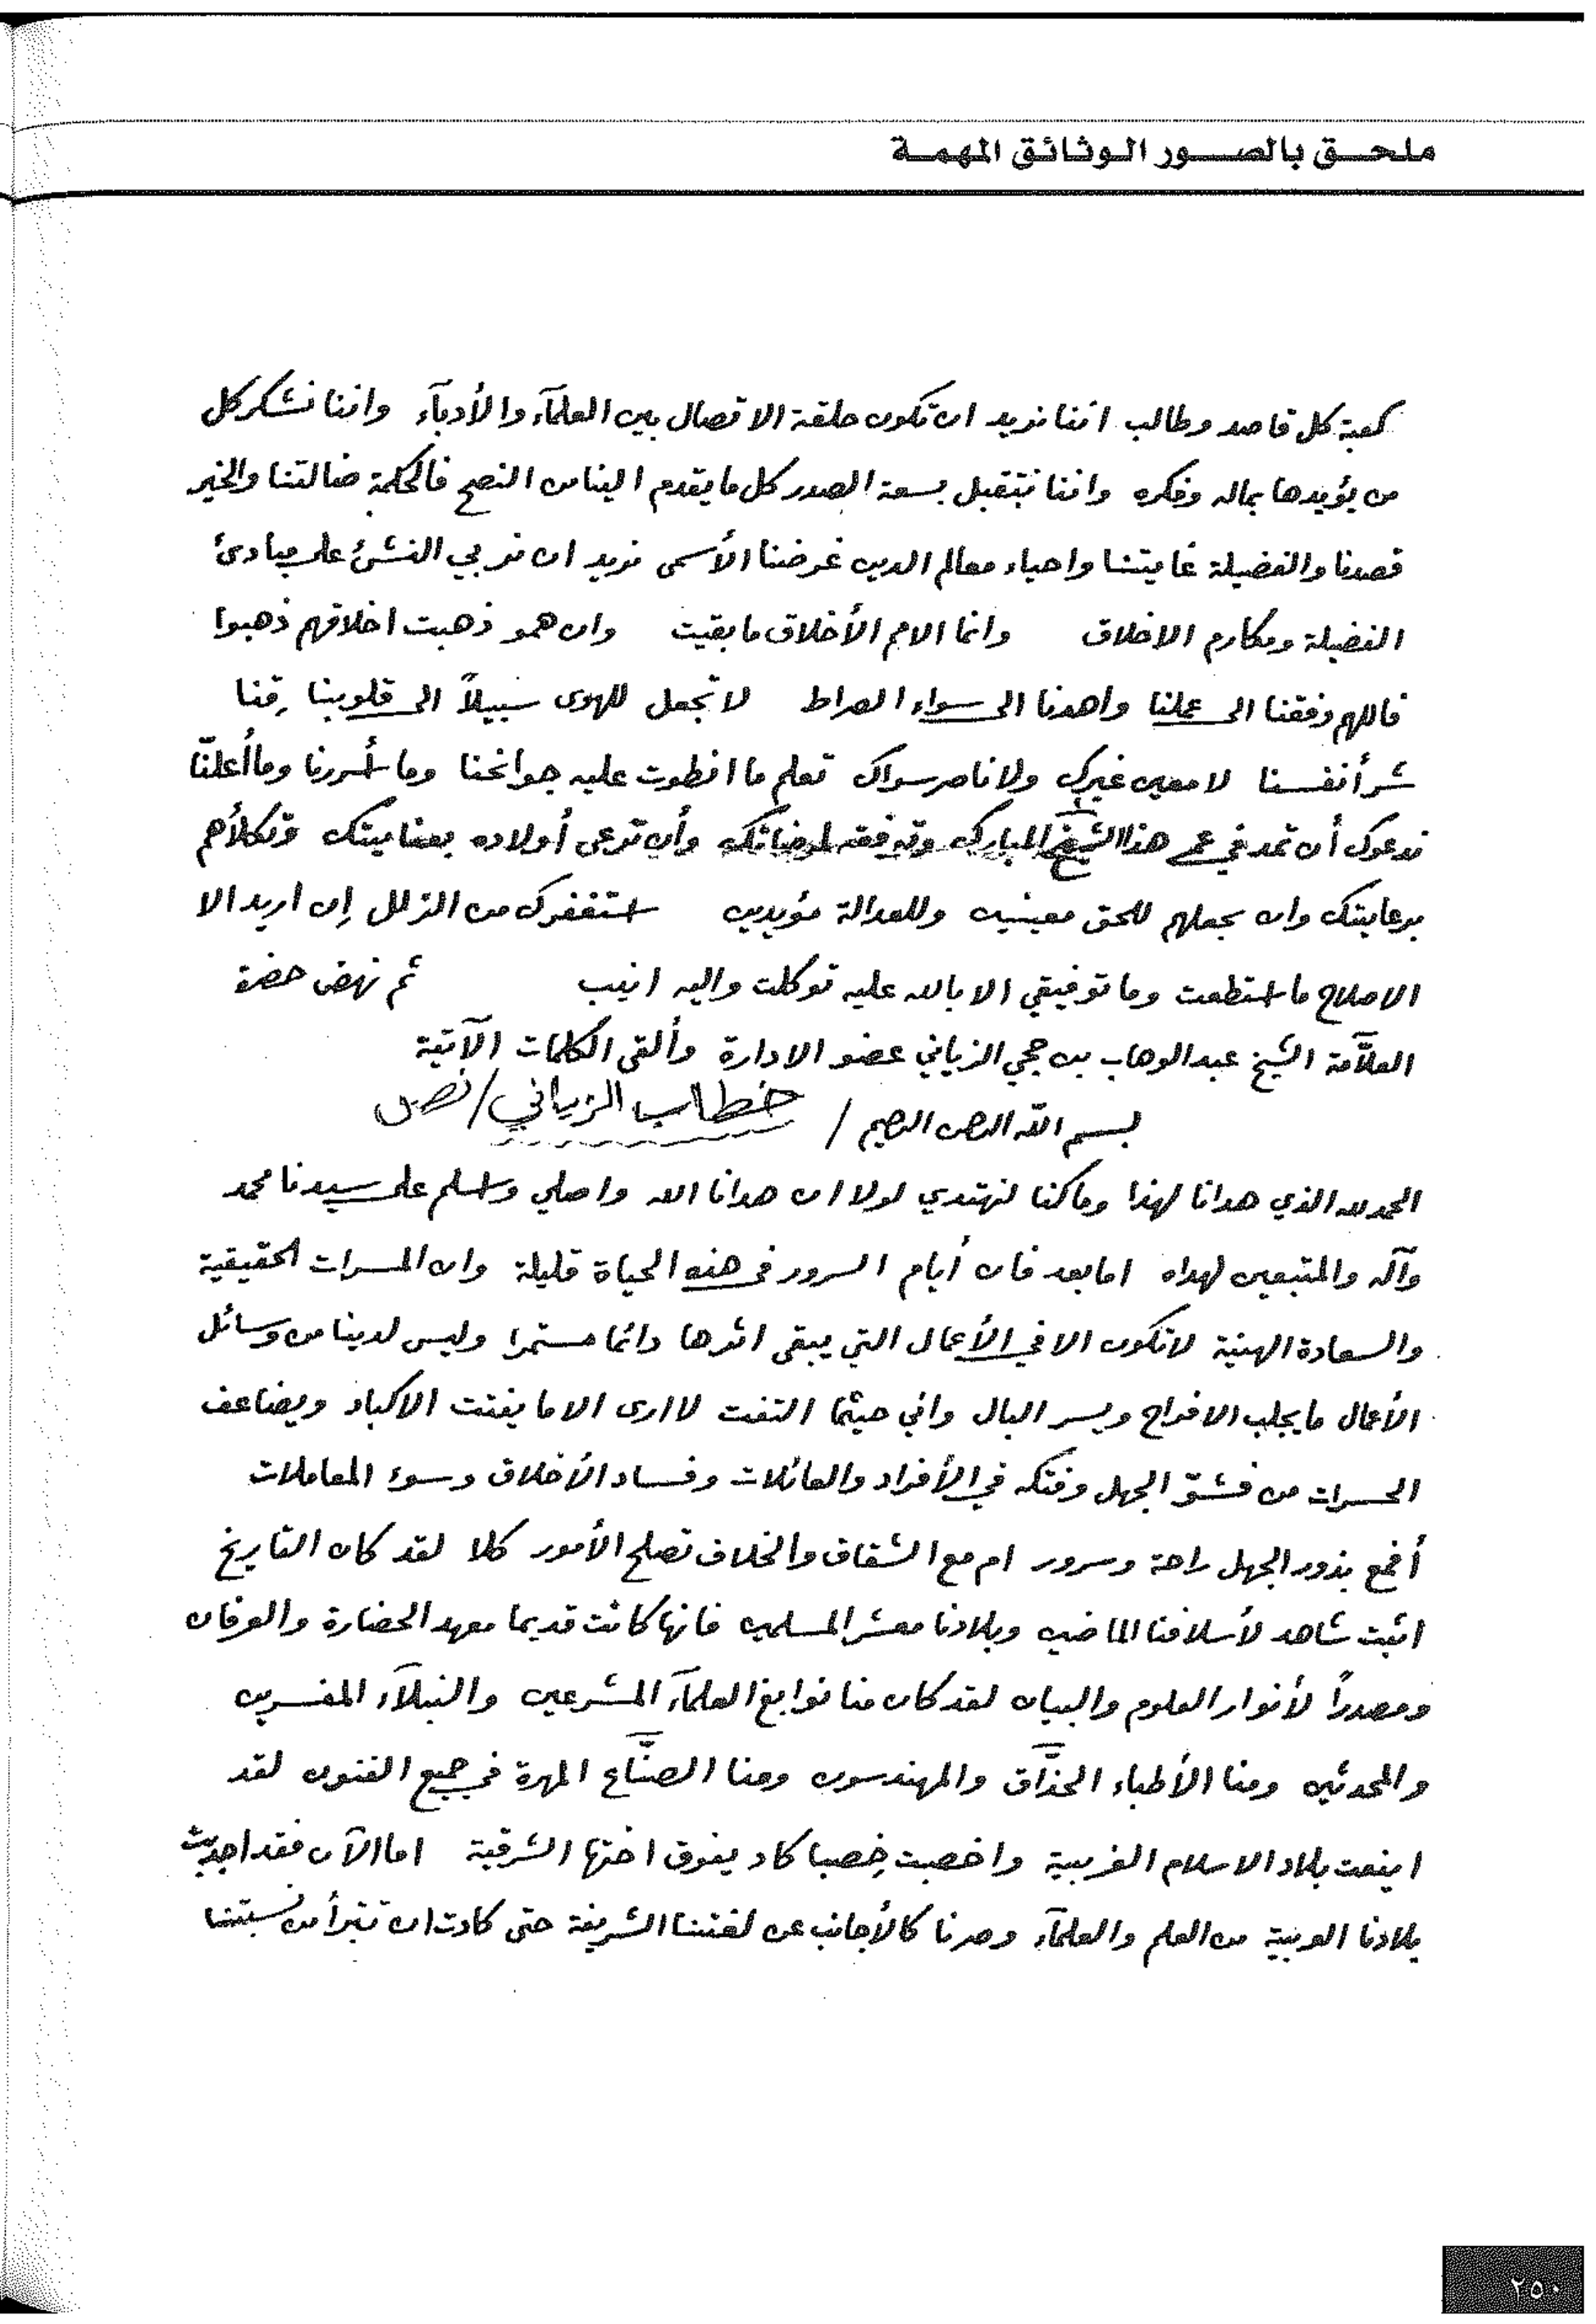 ملحق بالصور الوثائق المهمة
كعبة كل قاصد وطالب اننا نريد ان تكون حلقة الاتصال بين العلمآء والأدبآء واننا نشكر كل
من يؤيدها بماله وفكره واننا نتقبل بسعة الصدر كل ما يقدم الينا من النصح فالحكمة ضالتنا والخير
قصدنا والفضيلة غايتنا واحياء معالم الدين غرضنا الأسمى نريد ان نربي النشئ على مبادئ
الفضيلة ومكارم الاخلاق وانما الامم الأخلاق ما بقيت وان همو ذهبت اخلاقهم ذهبوا
فاللهم وفقنا الى عملنا واهدنا الى سواء الصراط لا تجعل للهوى سبيلاً الى قلوبنا وقِنا
شر أنفسنا لا معين غيرك ولا ناصر سواك تعلم ما انطوت عليه جوانحنا وما أسررنا وما أعلنّا
ندعوك أن تمد في عمر هذا الشيخ المبارك وتوفقه لمرضاتك وأن ترعى أولاده بعنايتك وتكلأهم
برعايتك وان تجعلهم للحق معينين وللعدالة مؤيدين استغفرك من الزلل إن اريد الا
الاصلاح ما استطعت وما توفيقي الا بالله عليه توكلت واليه انيب ثم نهض حضرة
العلاّمة الشيخ عبد الوهاب بن حجي الزياني عضو الادارة وألقى الكلمات الآتية
بسم الله الرحمن الرحيم / خطاب الزياني / نص
الحمد لله الذي هدانا لهذا وما كنا لنهتدي لولا ان هدانا الله واصلي واسلم على سيدنا محمد
وآله والمتبعين لهداه اما بعد فان أيام السرور في هذه الحياة قليلة وان المسرات الحقيقية
والسعادة الهنية لا تكون الا في الأعمال التي يبقى اثرها دائما مستمرا وليس لدينا من وسائل
الأعمال ما يجلب الافراح ويسر البال واني حيثما التفت لا ارى الا ما يفتت الاكباد ويضاعف
الحسرات من فشوّ الجهل وفتكه في الأفراد والعائلات وفساد الأخلاق وسوء المعاملات
أفمع بذور الجهل راحة وسرور ام مع الشقاق والخلاف تصلح الأمور كلا لقد كان التاريخ
اثبت شاهد لأسلافنا الماضين وبلادنا معشر المسلمين فانها كانت قديما معهد الحضارة والعرفان
ومصدراً لأنوار العلوم والبيان لقد كان منا نوابغ العلمآء المشرعين والنبلآء المفسرين
والمحدثين ومنا الأطباء الحذَّاق والمهندسون ومنا الصنَّاع المهرة في جميع الفنون لقد
اينعت بلاد الاسلام الغربية واخصبت خِصبا كاد يفوق اختها الشرقية اما الآن فقد اجدبت
بلادنا العربية من العلم والعلمآء وصرنا كالأجانب عن لغتنا الشريفة حتى كادت ان تتبرأ من نسبتنا
٢٥٠